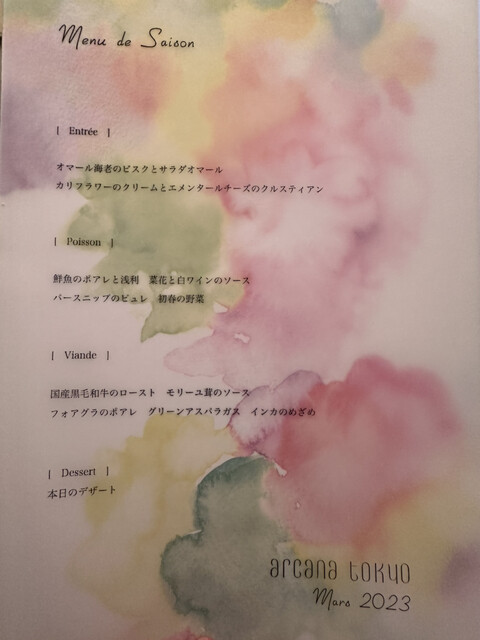 Menu de Saison
| Entrée |
オマール海老のビスクとサラダオマール
カリフラワーのクリームとエメンタールチーズのクルスティアン
| Poisson |
鮮魚のポアレと浅利　菜花と白ワインのソース
パースニップのピュレ　初春の野菜
| Viande |
国産黒毛和牛のロースト　モリーユ茸のソース
フォアグラのポアレ　グリーンアスパラガス　インカのめざめ
| Dessert |
本日のデザート
arcana tokyo
Mars 2023